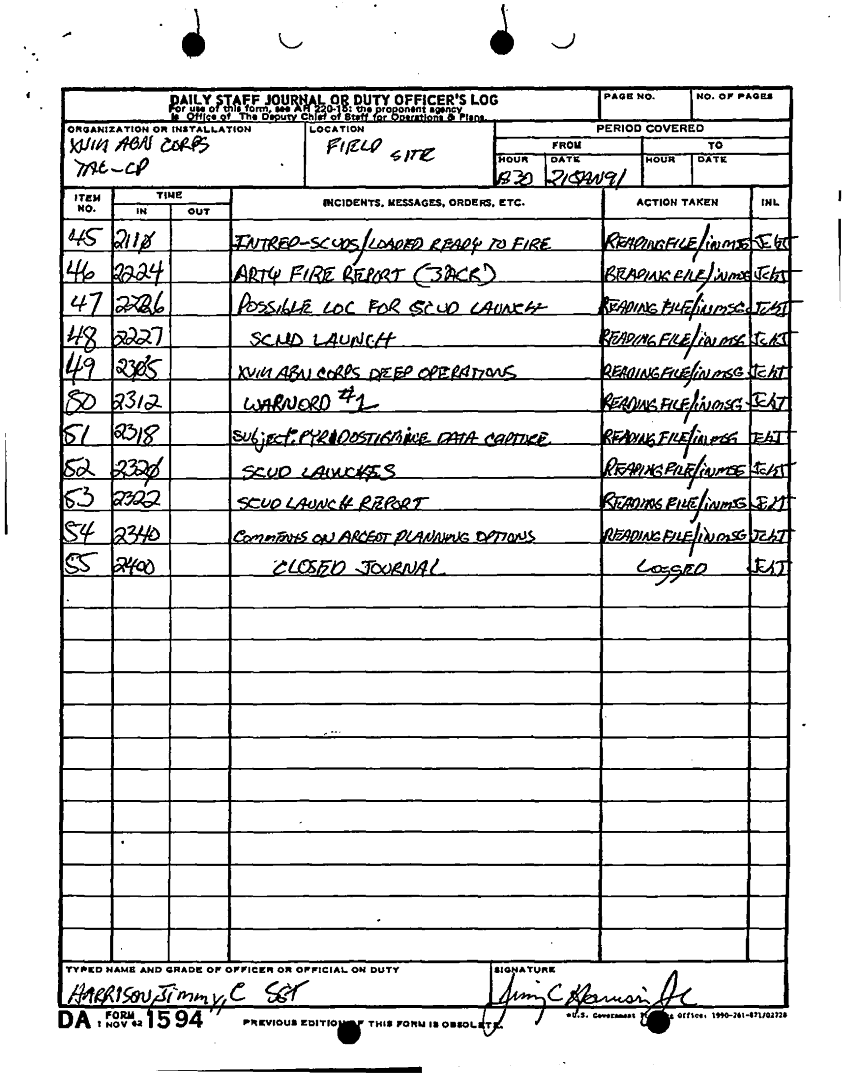 DAILY STAFF JOURNAL OR DUTY OFFICER'S LOG
For use of this form, see AR 220-15; the proponent agency
is Office of The Deputy Chief of Staff for Operations & Plans.
PAGE NO. NO. OF PAGES
ORGANIZATION OR INSTALLATION LOCATION PERIOD COVERED
XVIII ABN CORPS FIELD SITE FROM TO
TAC-CP HOUR DATE HOUR DATE
21JAN91
ITEM NO. TIME INCIDENTS, MESSAGES, ORDERS, ETC. ACTION TAKEN INL
IN OUT
45 2110 INTREP-SCUDS/LOADED READY TO FIRE READING FILE/INMSG
46 2224 ARTY FIRE REPORT (3ACR) READING FILE/INMSG
47 2226 POSSIBLE LOC FOR SCUD LAUNCH READING FILE/INMSG
48 2227 SCUD LAUNCH READING FILE/INMSG
49 2305 XVIII ABN CORPS DEEP OPERATIONS READING FILE/INMSG
50 2312 WARNORD #1 READING FILE/INMSG
51 2318 SUBJECT: PYRIDOSTIGMINE DATA CAPTURE READING FILE/INMSG
52 2320 SCUD LAUNCHES READING FILE/INMSG
53 2322 SCUD LAUNCH REPORT READING FILE/INMSG
54 2340 COMMENTS ON ARCENT PLANNING OPTIONS READING FILE/INMSG
55 2400 CLOSED JOURNAL LOGGED
TYPED NAME AND GRADE OF OFFICER OR OFFICIAL ON DUTY SIGNATURE
HARRISON, Jimmy, C SGT Jimmy C Harrison Jr
DA FORM 1594
1 NOV 62
PREVIOUS EDITION OF THIS FORM IS OBSOLETE.
*U.S. Government Office: 1990-261-871/02728